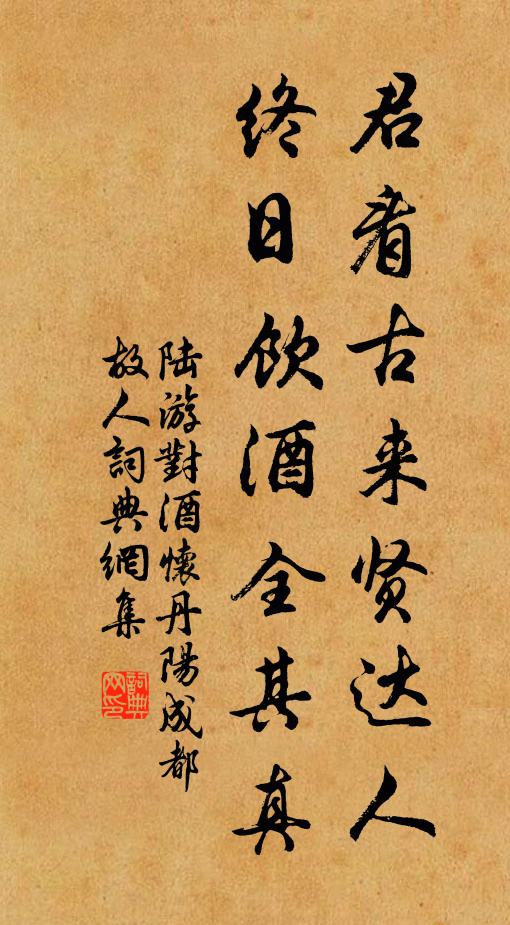 君看古来贤达人
终日饮酒全其真
陆游對酒懷丹陽成都
故人詞典網集
詞典网印